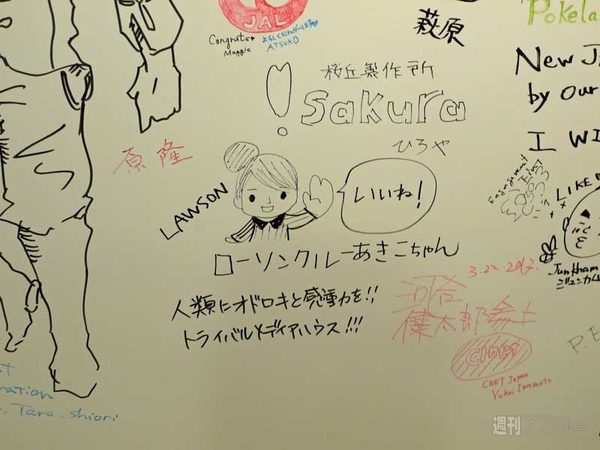 JAL
Congrats
Maggie
ATSUKO
萩原
Pokela
New J
by our
I WI
桜丘製作所
! Sakura
ひろや
原 隆
LAWSON
いいね!
ローソンクルーあきこちゃん
人類にオドロキと感動を!!
トライバルメディアハウス!!!
LIKE
Junkham
ジェンカム
3.22.2012.
河合
健太郎参上
cnet
CNET Japan
ration
Taro. shiori
P.E
週刊